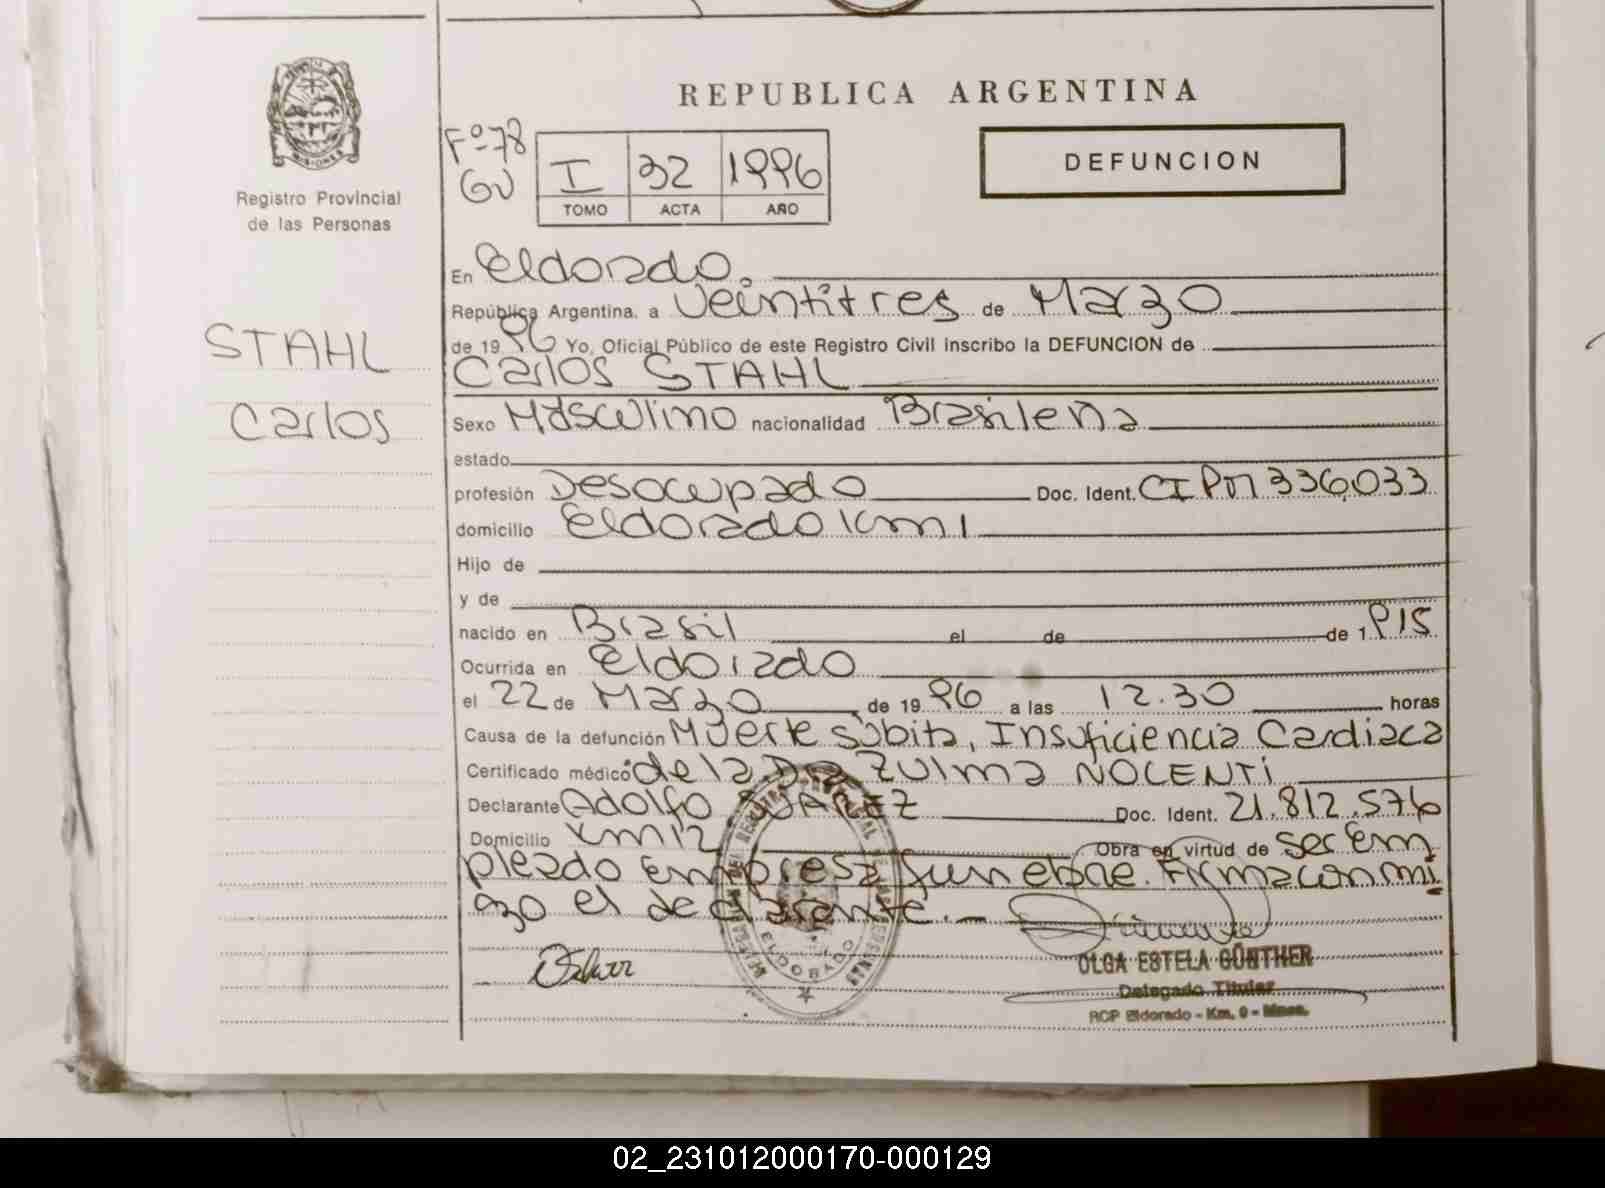 REPUBLICA ARGENTINA
DEFUNCION
MISIONES
Registro Provincial
de las Personas
Fº 78
I 32 1996
TOMO ACTA AÑO
En Eldorado.
República Argentina, a Veintitres de Marzo
de 1996 Yo, Oficial Público de este Registro Civil inscribo la DEFUNCION de
Carlos STAHL
STAHL
Carlos
Sexo Masculino nacionalidad Brasilena
estado
profesión Desocupado Doc. Ident. CIPM 336,033
domicilio Eldorado Km 1
Hijo de
y de
nacido en Brasil el de de 1915
Ocurrida en Eldorado
el 22 de Marzo de 1996 a las 12.30 horas
Causa de la defunción Muerte súbita, Insuficiencia Cardiaca
Certificado médico de la Dra Zulma NOCENTI
Declarante Adolfo Doc. Ident. 21.812.576
Domicilio Km 12 Obra en virtud de ser Em
pleado Empresa funebre. Firma con mi
go el declarante.
ELDORADO
OLGA ESTELA GÜNTHER
Delegado Titular
RCP Eldorado - Km. 9 - Mnes.
02_231012000170-000129